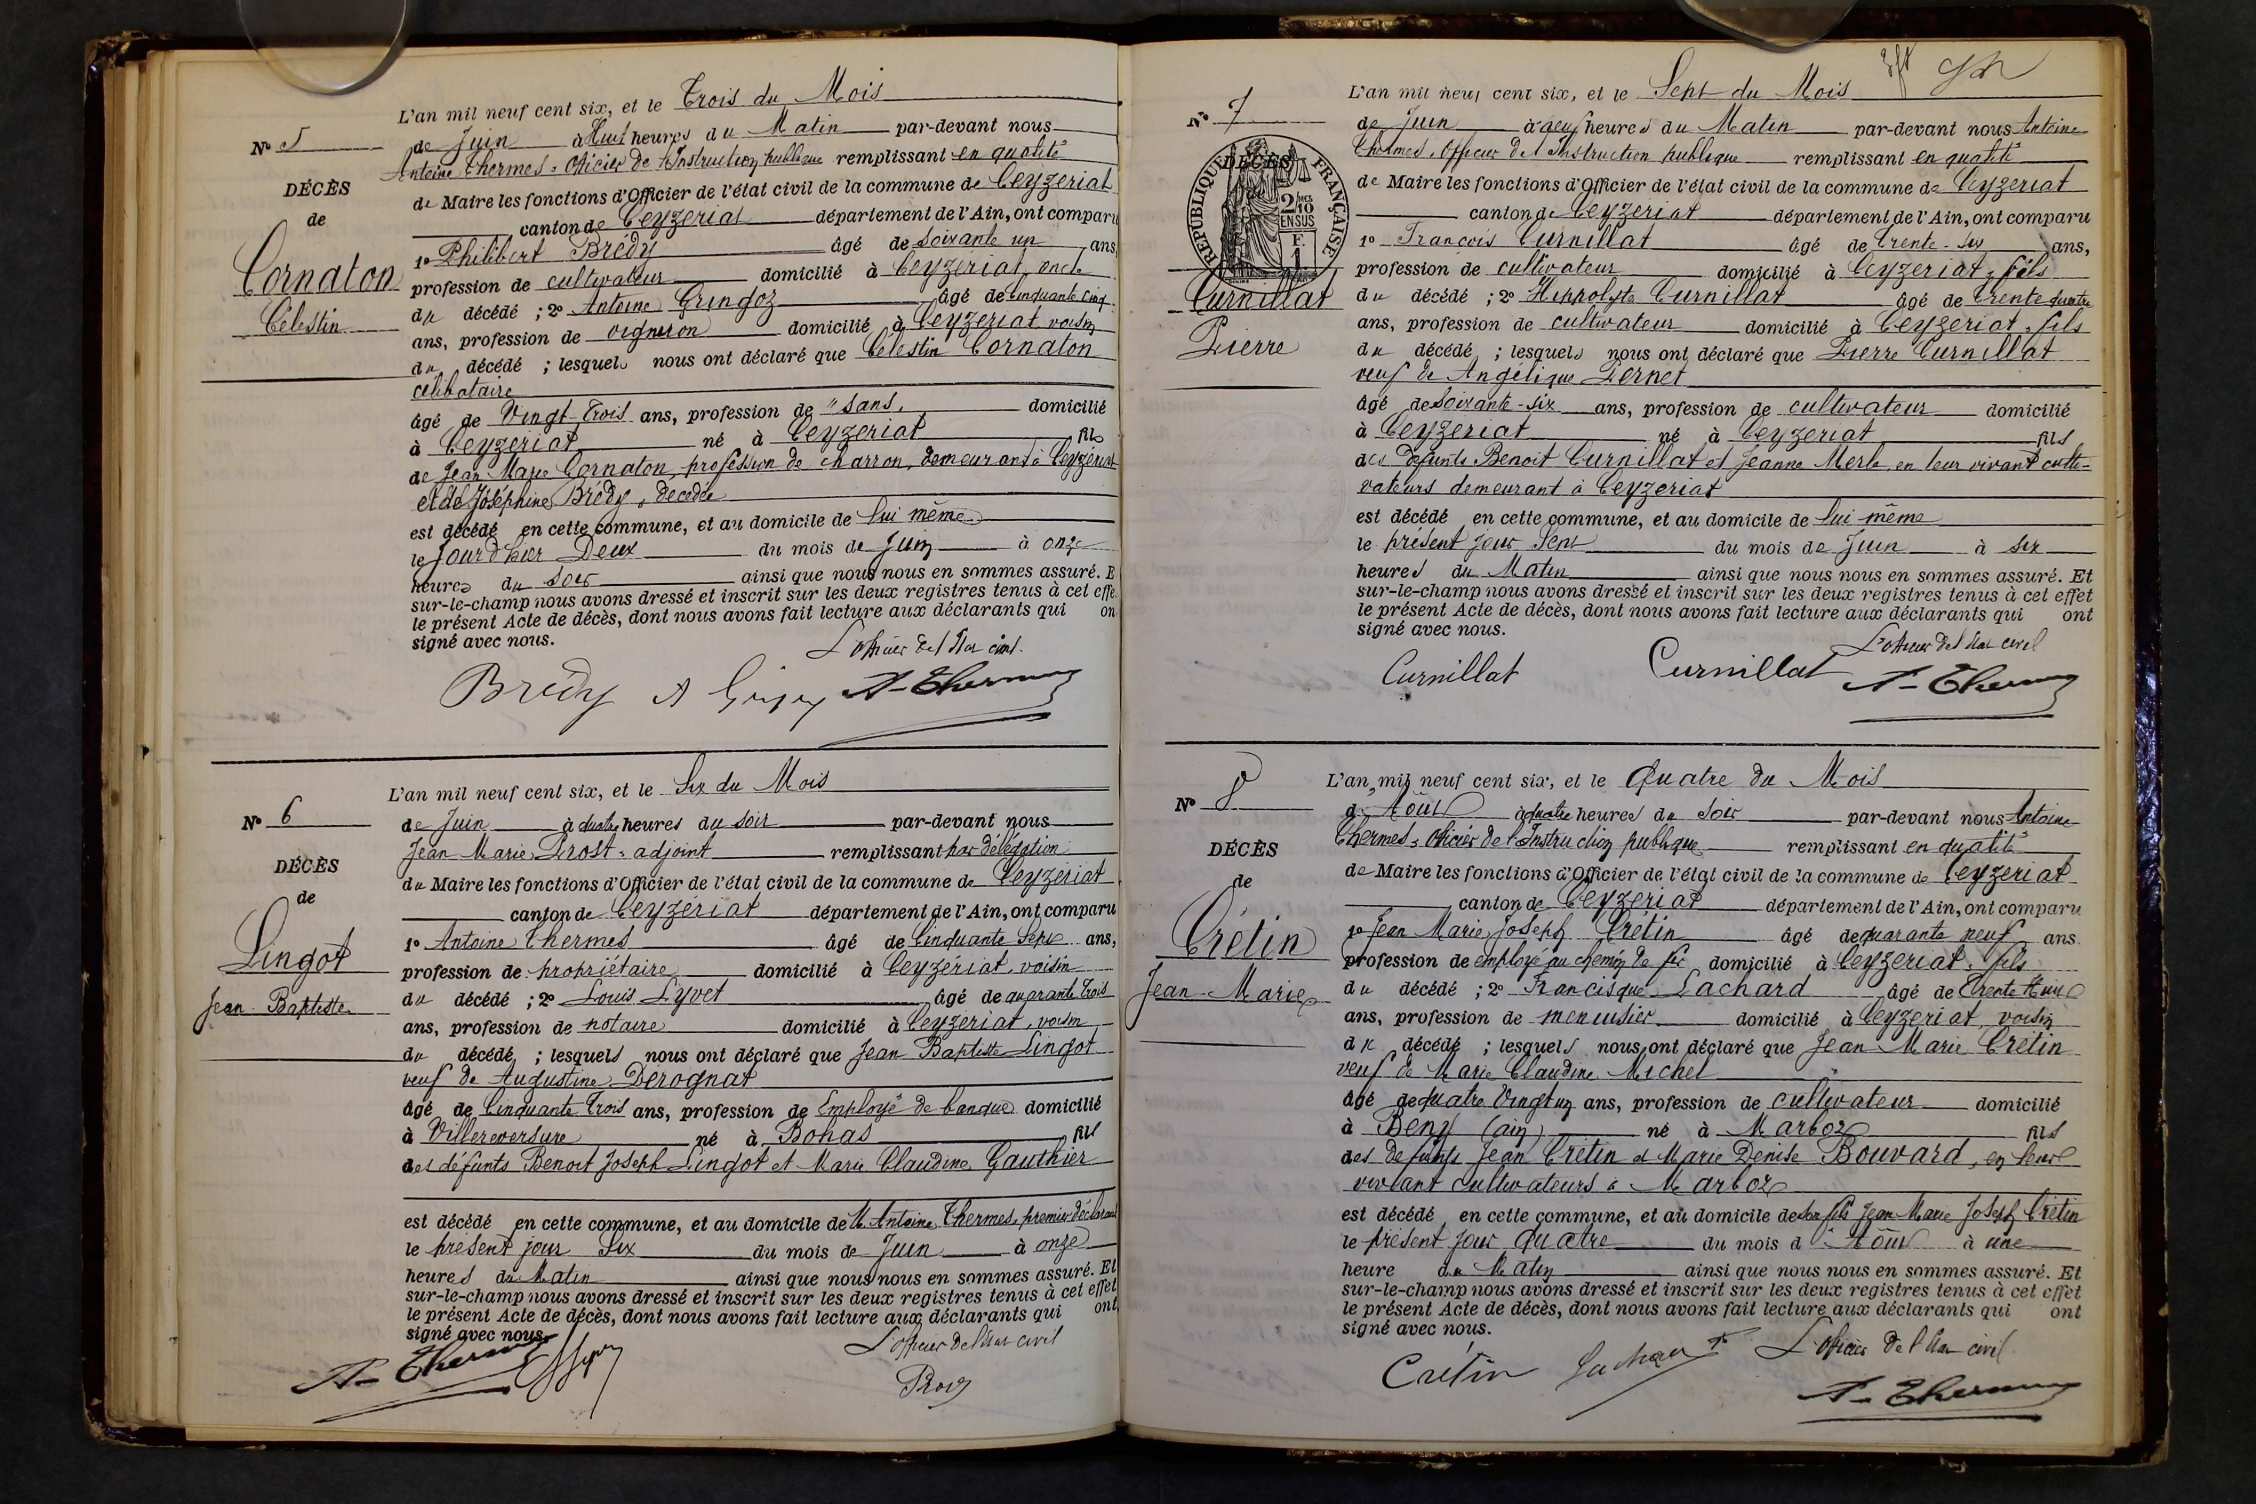 L'an mil neuf cent six, et le Trois du Mois
No 5 de Juin à Huit heures du Matin par-devant nous
Antoine Thermes, Officier de l'Instruction publique remplissant en qualité
DÉCÈS de Maire les fonctions d'Officier de l'état civil de la commune de Ceyzeriat
de canton de Ceyzeriat département de l'Ain, ont comparu
1o Philibert Brédy âgé de soixante un ans,
Cornaton profession de cultivateur domicilié à Ceyzeriat, oncle
du décédé ; 2o Antoine Gringoz âgé de Cinquante cinq
Célestin ans, profession de vigneron domicilié à Ceyzeriat voisin
du décédé ; lesquels nous ont déclaré que Célestin Cornaton
célibataire
âgé de Vingt-Trois ans, profession de "sans, domicilié
à Ceyzeriat né à Ceyzeriat fils
de Jean Marie Cornaton, profession de charron, demeurant à Ceyzeriat
et de Joséphine Brédy, décédée
est décédé en cette commune, et au domicile de lui même
le jour d'hier Deux du mois de Juin à onze
heures du soir ainsi que nous nous en sommes assuré. E
sur-le-champ nous avons dressé et inscrit sur les deux registres tenus à cet effe
le présent Acte de décès, dont nous avons fait lecture aux déclarants qui on
signé avec nous.
L'officier de l'Etat civil.
Brédy A A-Thermes
L'an mil neuf cent six, et le Six du Mois
No 6 de Juin à quatre heures du soir par-devant nous
Jean Marie Prost, adjoint remplissant par délégation
DÉCÈS du Maire les fonctions d'Officier de l'état civil de la commune de Ceyzériat
de canton de Ceyzériat département de l'Ain, ont comparu
Lingot 1o Antoine Thermes âgé de Cinquante Sept ans,
profession de propriétaire domicilié à Ceyzériat, voisin
Jean Baptiste du décédé ; 2o Louis Lyvet âgé de quarante Trois
ans, profession de notaire domicilié à Ceyzeriat, voisin
du décédé ; lesquels nous ont déclaré que Jean Baptiste Lingot
veuf de Augustine Dérognat
âgé de Cinquante Trois ans, profession de Employé de banque domicilié
à Villereversure né à Bohas fils
des défunts Benoit Joseph Lingot et Marie Claudine Gauthier
est décédé en cette commune, et au domicile de M. Antoine Thermes, premier déclarant
le présent jour Six du mois de Juin à onze
heures du Matin ainsi que nous nous en sommes assuré. Et
sur-le-champ nous avons dressé et inscrit sur les deux registres tenus à cet effet
le présent Acte de décès, dont nous avons fait lecture aux déclarants qui ont
signé avec nous.
L'officier de l'Etat civil
A-Thermes
Prost
L'an mil neuf cent six, et le Sept du Mois
No 7 de Juin à neuf heures du Matin par-devant nous Antoine
Thermes, Officier de l'Instruction publique remplissant en qualité
DÉCÈS
RÉPUBLIQUE FRANÇAISE
2/10 EN SUS
F.
1
de Maire les fonctions d'Officier de l'état civil de la commune de Ceyzeriat
canton de Ceyzeriat département de l'Ain, ont comparu
1o François Curnillat âgé de Trente-six ans,
profession de cultivateur domicilié à Ceyzeriat, fils
Curnillat du décédé ; 2o Hippolyte Curnillat âgé de Trente quatre
ans, profession de cultivateur domicilié à Ceyzeriat, fils
Pierre du décédé ; lesquels nous ont déclaré que Pierre Curnillat
veuf de Angélique Pernet
âgé de Soixante-six ans, profession de cultivateur domicilié
à Ceyzeriat né à Ceyzeriat fils
des défunts Benoit Curnillat et Jeanne Merle, en leur vivant culti-
vateurs demeurant à Ceyzeriat
est décédé en cette commune, et au domicile de lui même
le présent jour Sept du mois de Juin à six
heures du Matin ainsi que nous nous en sommes assuré. Et
sur-le-champ nous avons dressé et inscrit sur les deux registres tenus à cet effet
le présent Acte de décès, dont nous avons fait lecture aux déclarants qui ont
signé avec nous.
L'officier de l'Etat civil
Curnillat Curnillat A-Thermes
L'an mil neuf cent six, et le Quatre du Mois
No 8 d'Août à quatre heures du soir par-devant nous Antoine
Thermes, Officier de l'Instruction publique remplissant en qualité
DÉCÈS de Maire les fonctions d'Officier de l'état civil de la commune de Ceyzeriat
de canton de Ceyzeriat département de l'Ain, ont comparu
Crétin 1o Jean Marie Joseph Crétin âgé de quarante neuf ans
profession de employé au chemin de fer domicilié à Ceyzeriat, fils
Jean-Marie du décédé ; 2o Francisque Lachard âgé de Trente Huit
ans, profession de menuisier domicilié à Ceyzeriat, voisin
du décédé ; lesquels nous ont déclaré que Jean Marie Crétin
veuf de Marie Claudine Michel
âgé de quatre Vingt un ans, profession de cultivateur domicilié
à Beny (ain) né à Marboz fils
des défunts Jean Crétin et Marie Denise Bouvard, en leur
vivant cultivateurs à Marboz
est décédé en cette commune, et au domicile de son fils Jean Marie Joseph Crétin
le présent jour quatre du mois d'Août à une
heure du Matin ainsi que nous nous en sommes assuré. Et
sur-le-champ nous avons dressé et inscrit sur les deux registres tenus à cet effet
le présent Acte de décès, dont nous avons fait lecture aux déclarants qui ont
signé avec nous.
L'officier de l'Etat civil
Crétin Lachard
A-Thermes